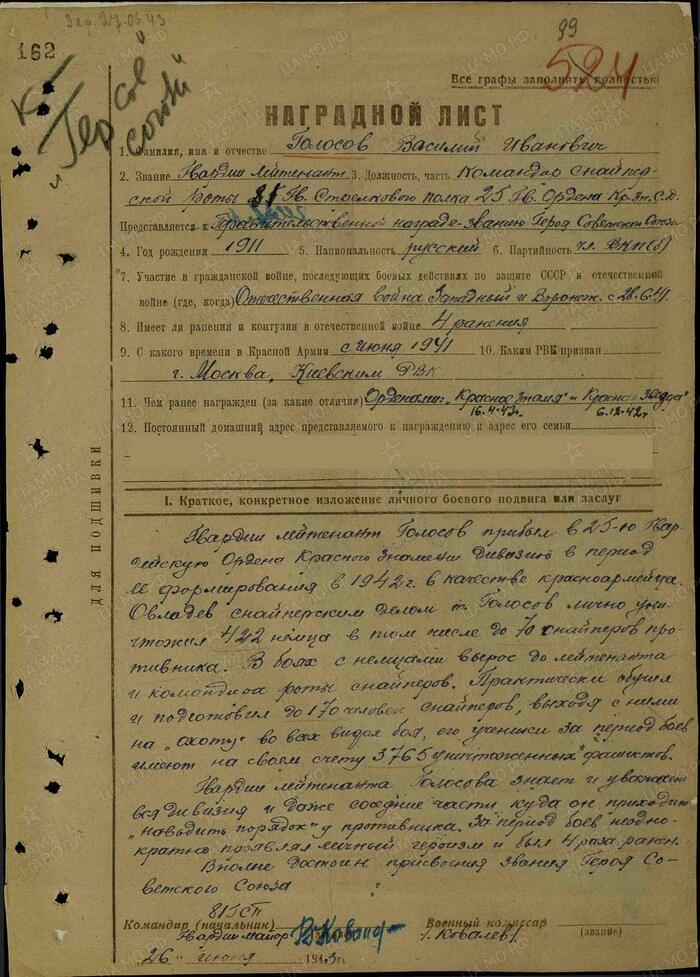 Зар. 27.06.43
162
99
524
"Герой Союза"
Все графы заполнять полностью
НАГРАДНОЙ ЛИСТ
1. Фамилия, имя и отчество Голосов Василий Иванович
2. Звание Гвардии лейтенант 3. Должность, часть Командир снайпер-
ской роты 81 Гв. Стрелкового полка 25 Гв. Ордена Кр. Зн. С.Д.
Представляется к Правительственной награде-званию Герой Советского Союза
4. Год рождения 1911 5. Национальность русский 6. Партийность чл. ВКП(б)
7. Участие в гражданской войне, последующих боевых действиях по защите СССР и отечественной
войне (где, когда) Отечественная война Западный и Воронеж. с 28.6.41.
8. Имеет ли ранения и контузии в отечественной войне 4 ранения
9. С какого времени в Красной Армии с июня 1941 10. Каким РВК призван
г. Москва, Киевским РВК
11. Чем ранее награжден (за какие отличия) Орденами: „Красное Знамя" и „Красная Звезда"
16.4.43г. 6.12.42г.
12. Постоянный домашний адрес представляемого к награждению и адрес его семьи
I. Краткое, конкретное изложение личного боевого подвига или заслуг
Гвардии лейтенант Голосов прибыл в 25-ю Гвар-
дейскую Ордена Красного Знамени дивизию в период
ее формирования в 1942 г. в качестве красноармейца.
Овладев снайперским делом т. Голосов лично уни-
чтожил 422 немца в том числе до 70 снайперов про-
тивника. В боях с немцами вырос до лейтенанта
и командира роты снайперов. Практически обучил
и подготовил до 170 человек снайперов, выходя с ними
на „охоту" во всех видах боя, его ученики за период боев
имеют на своем счету 3765 уничтоженных фашистов.
Гвардии лейтенанта Голосова знает и уважает
вся дивизия и даже соседние части куда он приходил
„наводить порядок" у противника. За период боев неодно-
кратно проявлял личный героизм и был 4 раза ранен.
Вполне достоин присвоения звания Героя Со-
ветского Союза
81 ГСП
Командир (начальник)
Военный комиссар
Гвардии майор
/Ковалев/
(звание)
26 июня 1943 г.
ДЛЯ ПОДШИВКИ